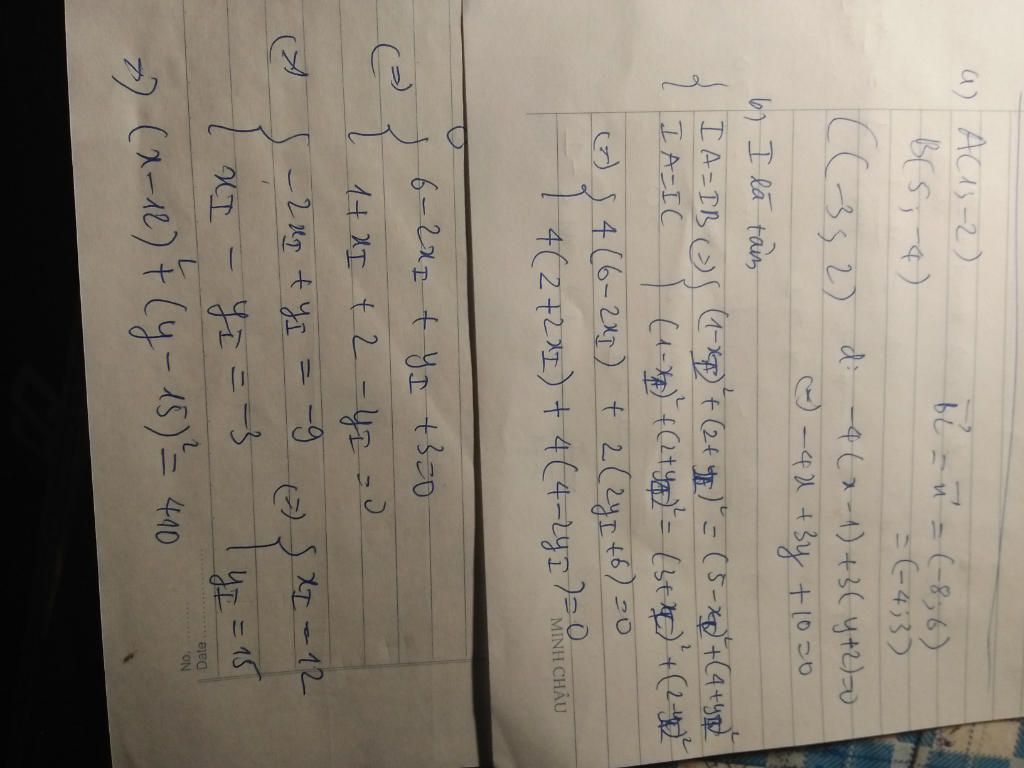 a)
A(1; -2)
B(5; -4)
BC = n = (-8; 6)
= (-4; 3)
C(-3; 2) d: -4(x-1)+3(y+2)=0
(=) -4x + 3y + 10 = 0
b) I là tâm
{ IA = IB (=) { (1-xI)² + (2+yI)² = (5-xI)² + (4+yI)²
IA = IC { (1-xI)² + (2+yI)² = (3+xI)² + (2-yI)²
(=) { 4(6-2xI) + 2(2yI+6) = 0
4(2+2xI) + 4(4-2yI) = 0
MINH CHÂU
(=) { 6-2xI + yI + 3 = 0
1+xI + 2 - yI = 0
(=) { -2xI + yI = -9 (=) { xI = 12
xI - yI = -3 yI = 15
=) (x-12)² + (y-15)² = 410
No.
Date